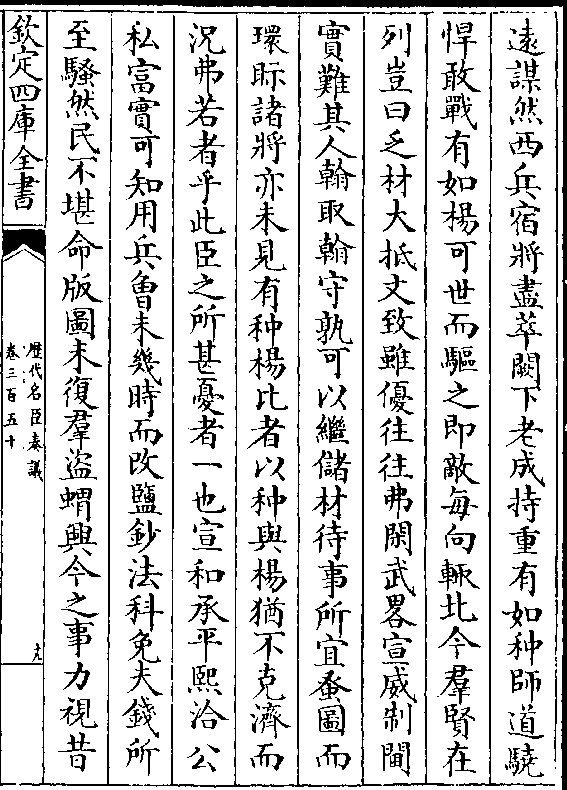 遠謀然西兵宿將盡萃闕下老成持重有如种師道驍
悍敢戰有如楊可世而驅之即敵每向輒北今羣賢在
列豈曰乏材大抵文致雖優往往弗閑武畧宣威制閫
實難其人翰取翰守孰可以繼儲材待事所宜蚤圖而
環眎諸將亦未見有种楊比者以种與楊猶不克濟而
況弗若者乎此臣之所甚憂者一也宣和承平熙洽公
私富實可知用兵曾未幾時而改鹽鈔法科免夫錢所
至騷然民不堪命版圖未復羣盜蝟興今之事力視昔
欽定四庫全書
歷代名臣奏議
卷三百五十
九